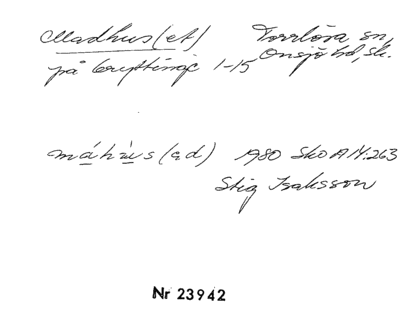 Madhus(et) Torrlösa sn,
på bryttning 1-15 Onsjö hd, sk.
máhùs (ə d) 1980 Sko A 14:263
Stig Isaksson
Nr 23942